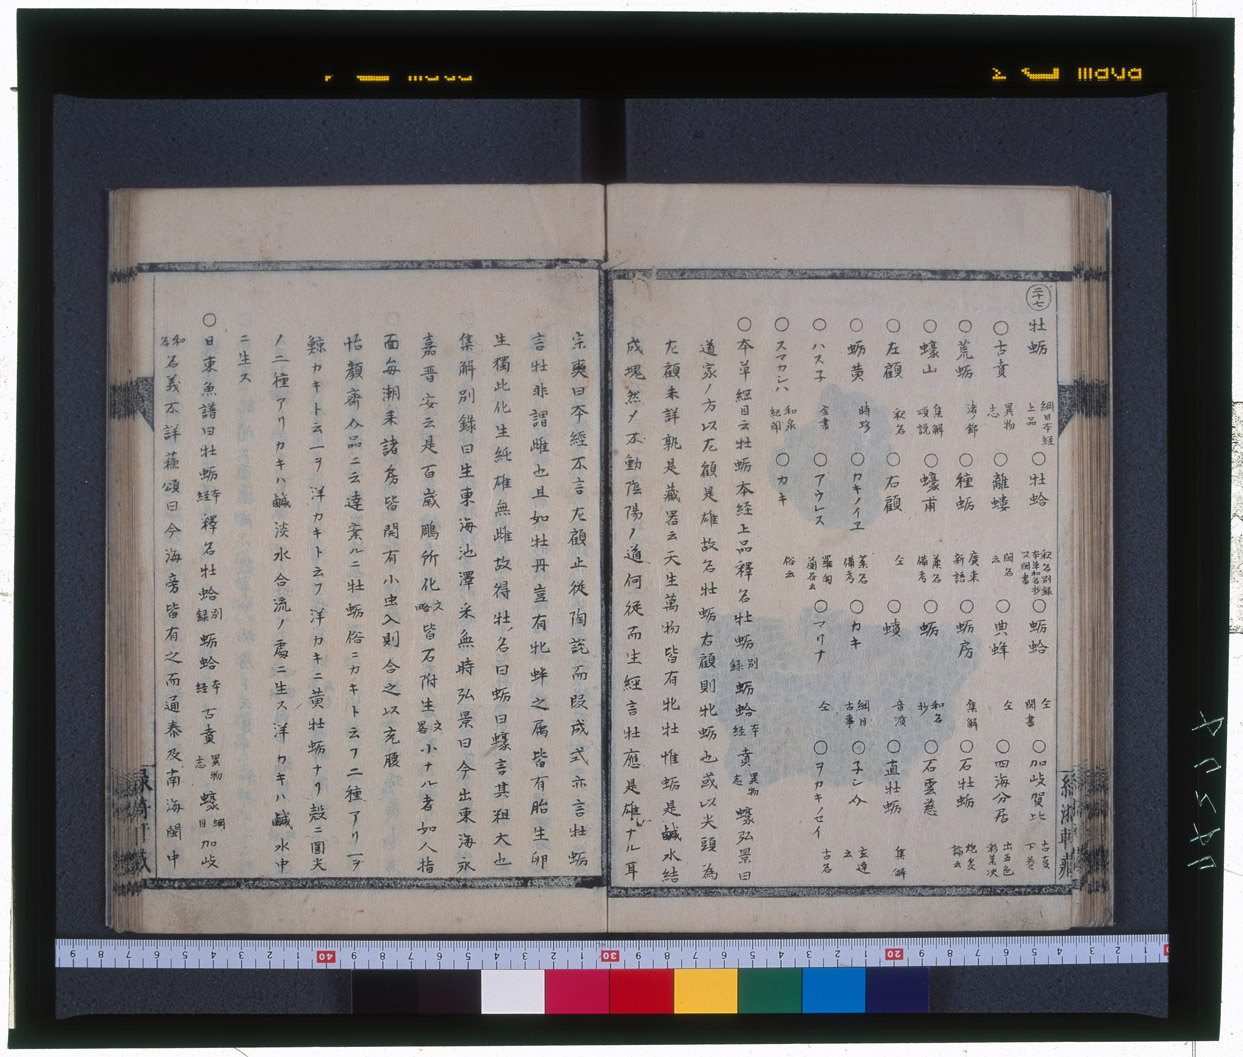 二十七
牡蛎 綱目本経上品 ○牡蛤 釈名別録 ○蛎蛤 仝 ○加岐賀比 古事下巻
○古賁 異物志 ○離螻 ○典蜂 仝 ○四海分居
○荒蛎 ○種蛎 廣東新語 ○蛎房 集解 ○石牡蛎
○蠔山 集解頌説 ○蠔甫 藥名備考 ○蛎 和名抄 ○石雲慈
○左顧 釈名 ○右顧 仝 ○蠔 ○直牡蛎 集解
○蛎黄 時珍 ○カキノイヱ 藥名備考 ○カキ 綱目
○ハス子 全書 ○アウレス ○マリナ 仝 ○ヲカキノセイ 古名
○スマカシハ 和泉紀聞 ○カキ 俗云
○本草綱目云牡蛎本経上品釋名牡蛎別録蛎蛤本経賁異物志蠔弘景曰
道家ノ方以左顧是雄故名牡蛎右顧則牝蛎也或以尖頭為
左顧未詳孰是藏器云天生萬物皆有牝牡惟蛎是鹹水結
成塊然メ不動陰陽ノ道何徒而生経言牡應是雄ナル耳
宗奭曰本経不言左顧止従陶説而段成式亦言牡蛎
言牡非謂雌也且如牡丹豈有牝蚌之属皆有胎生卵
生獨此化生純雄無雌故得牡名曰蛎曰蠔言其粗大也
集解別録曰生東海池澤采無時弘景曰今出東海永
嘉晋安云是百歳鵰所化文略皆石附生文畧小ナル者如人指
面每潮来諸房皆開有小虫入則合之以充腹
怡顏齋介品ニ云達案ルニ牡蛎俗ニカキト云フ二種アリ一ヲ
鯨カキト云一ヲ洋カキト云フ洋カキニ黄牡蛎ナリ殻ニ圓尖
ノ二種アリカキハ鹹淡水合流ノ處ニ生ス洋カキハ鹹水中
ニ生ス
○日東魚譜曰牡蛎本経釋名牡蛤別録蛎蛤本経古賁異物志蠔綱目加岐
和名名義不詳蘓頌曰今海旁皆有之而通泰及南海閩中